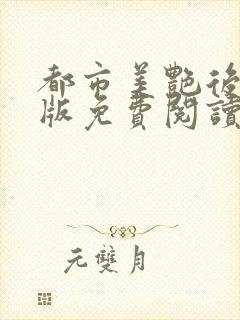 都市美艷後
版免費閱讀
元雙月